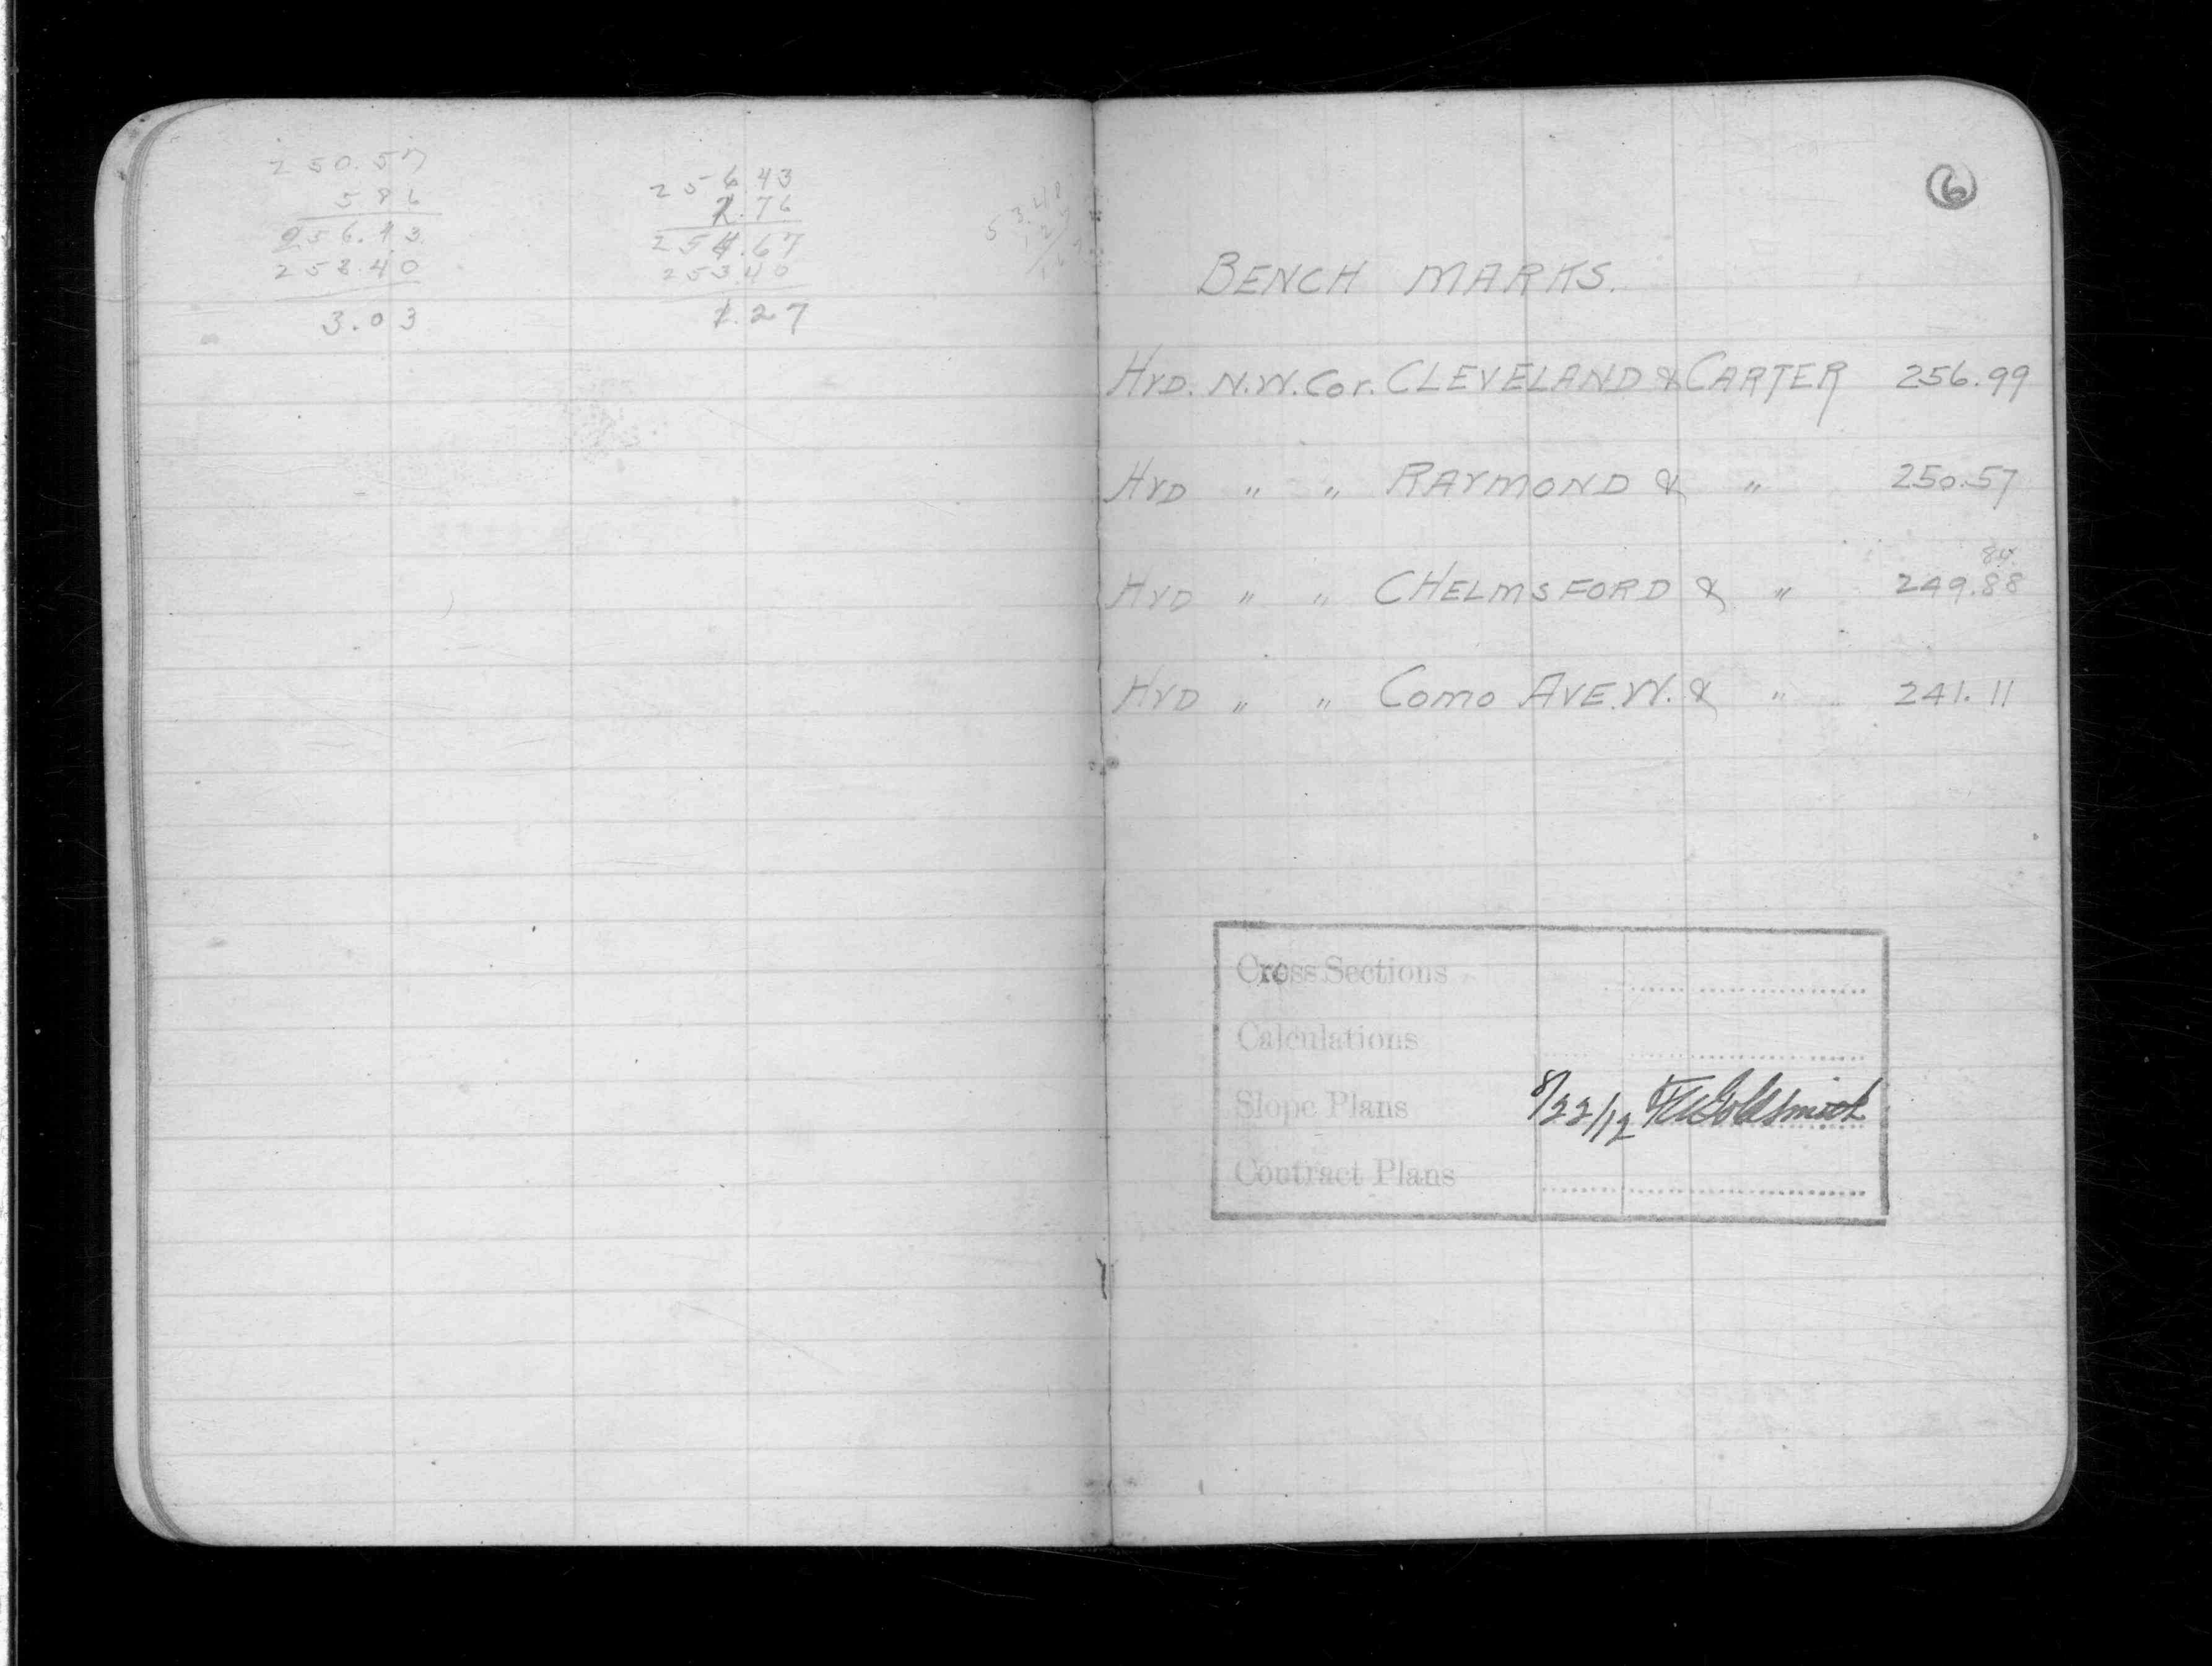 250.57
586
256.43
253.40
3.03
256.43
1.76
254.67
253.40
1.27
53.40
6
BENCH MARKS.
HYD. N.W. Cor. CLEVELAND & CARTER 256.99
HYD " " RAYMOND & " 250.57
84
HYD " " CHELMSFORD & " 249.88
HYD " " COMO AVE. W. & " 241.11
Cross Sections
Calculations
Slope Plans 8/22/12 Goldsmith
Contract Plans